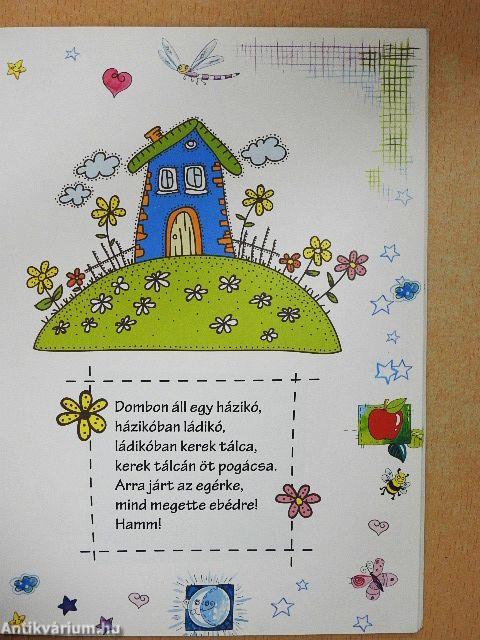 Dombon áll egy házikó,
házikóban ládikó,
ládikóban kerek tálca,
kerek tálcán öt pogácsa.
Arra járt az egérke,
mind megette ebédre!
Hamm!
Antikvárium.hu